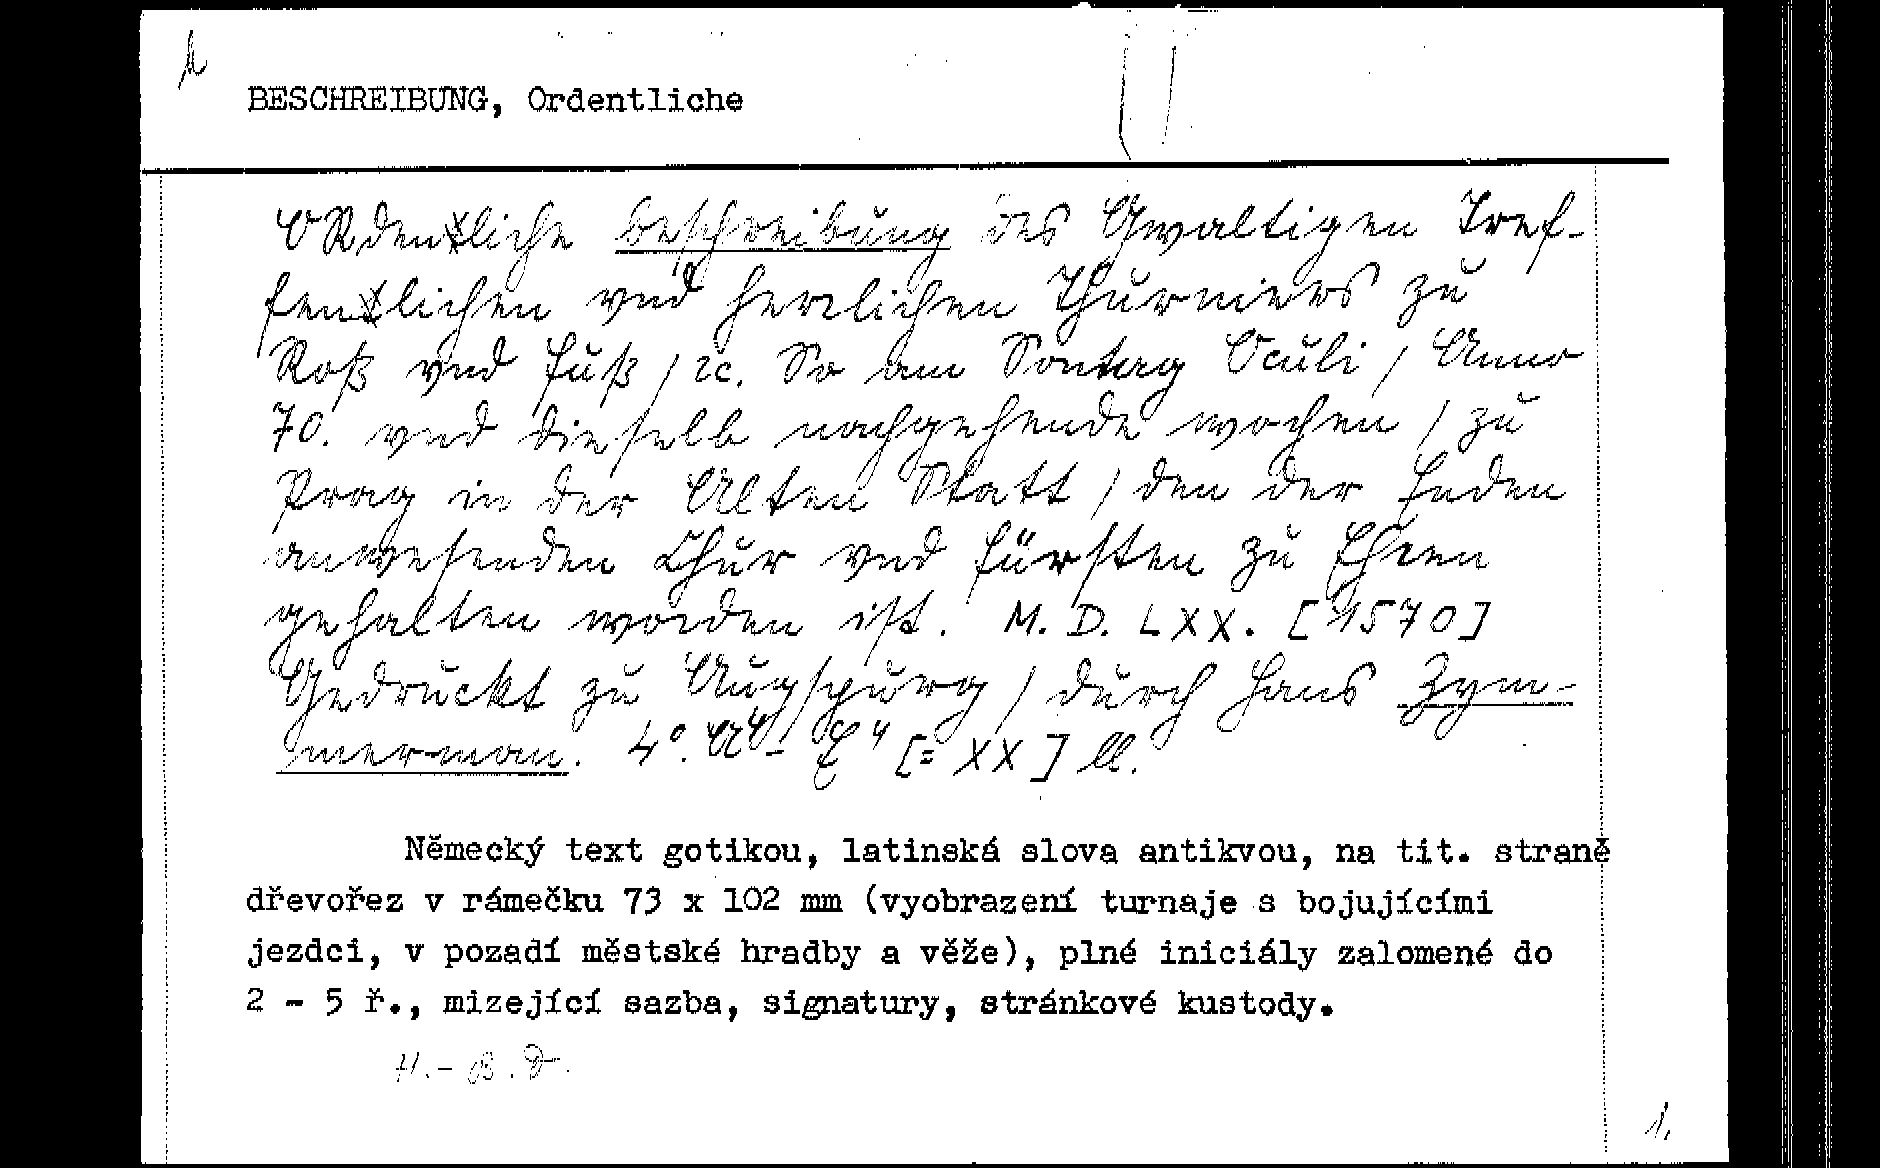 BESCHREIBUNG, Ordentliche
ORdenliche beschreibung des Gwaltigen Tref-
fenlichen vnd herrlichen Thurniers zu
Roß vnd Fuß / ꝛc. So am Sontag Oculi / Anno
70. vnd dieselb nachgehende wochen / zu
Prag in der Alten Statt / den der Enden
anwesenden Chur vnd Fürsten zu Ehren
gehalten worden ist. M. D. LXX. [1570]
Gedruckt zu Augspurg / durch Hans Zym-
merman. 4°. A⁴ - E⁴ [= XX] ll.
Německý text gotikou, latinská slova antikvou, na tit. straně
dřevořez v rámečku 73 x 102 mm (vyobrazení turnaje s bojujícími
jezdci, v pozadí městské hradby a věže), plné iniciály zalomené do
2 - 5 ř., mizející sazba, signatury, stránkové kustody.
H.-B.D.
1.